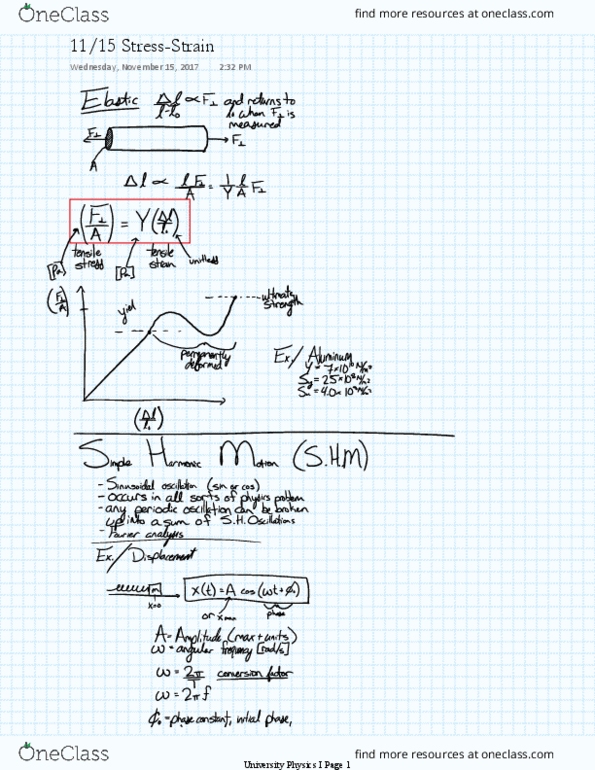 OneClass
find more resources at oneclass.com
11/15 Stress-Strain
Wednesday, November 15, 2017 2:32 PM
Elastic Δl/l-l₀ ∝ F⊥ and returns to
l₀ when F⊥ is
measured
F⊥
F⊥
A
Δl ∝ lF⊥/A = 1/Y l/A F⊥
(F⊥/A) = Y(Δl/l₀)
tensile stress
tensile
unitless
[Pa]
[Pa]
(F⊥/A)
yield
ultimate strength
permanently deformed
(Δl/l₀)
Ex/ Aluminum
Y = 7×10¹⁰ N/m²
Sy = 2.5×10⁸ N/m²
Su = 4.0×10⁸ N/m²
Simple Harmonic Motion (S.H.M)
- Sinnusoidal oscillation (sin or cos)
- occurs in all sorts of physics problem
- any periodic oscillation can be broken
up into a sum of S.H. Oscillations
- Fourier analysis
Ex/ Displacement
x=0
x(t) = A cos(ωt+φ₀)
or xmax
phase
A = Amplitude (max + units)
ω = angular frequency [rad/s]
ω = 2π/T conversion factor
ω = 2πf
φ₀ = phase constant, initial phase,
OneClass
find more resources at oneclass.com
University Physics I Page 1